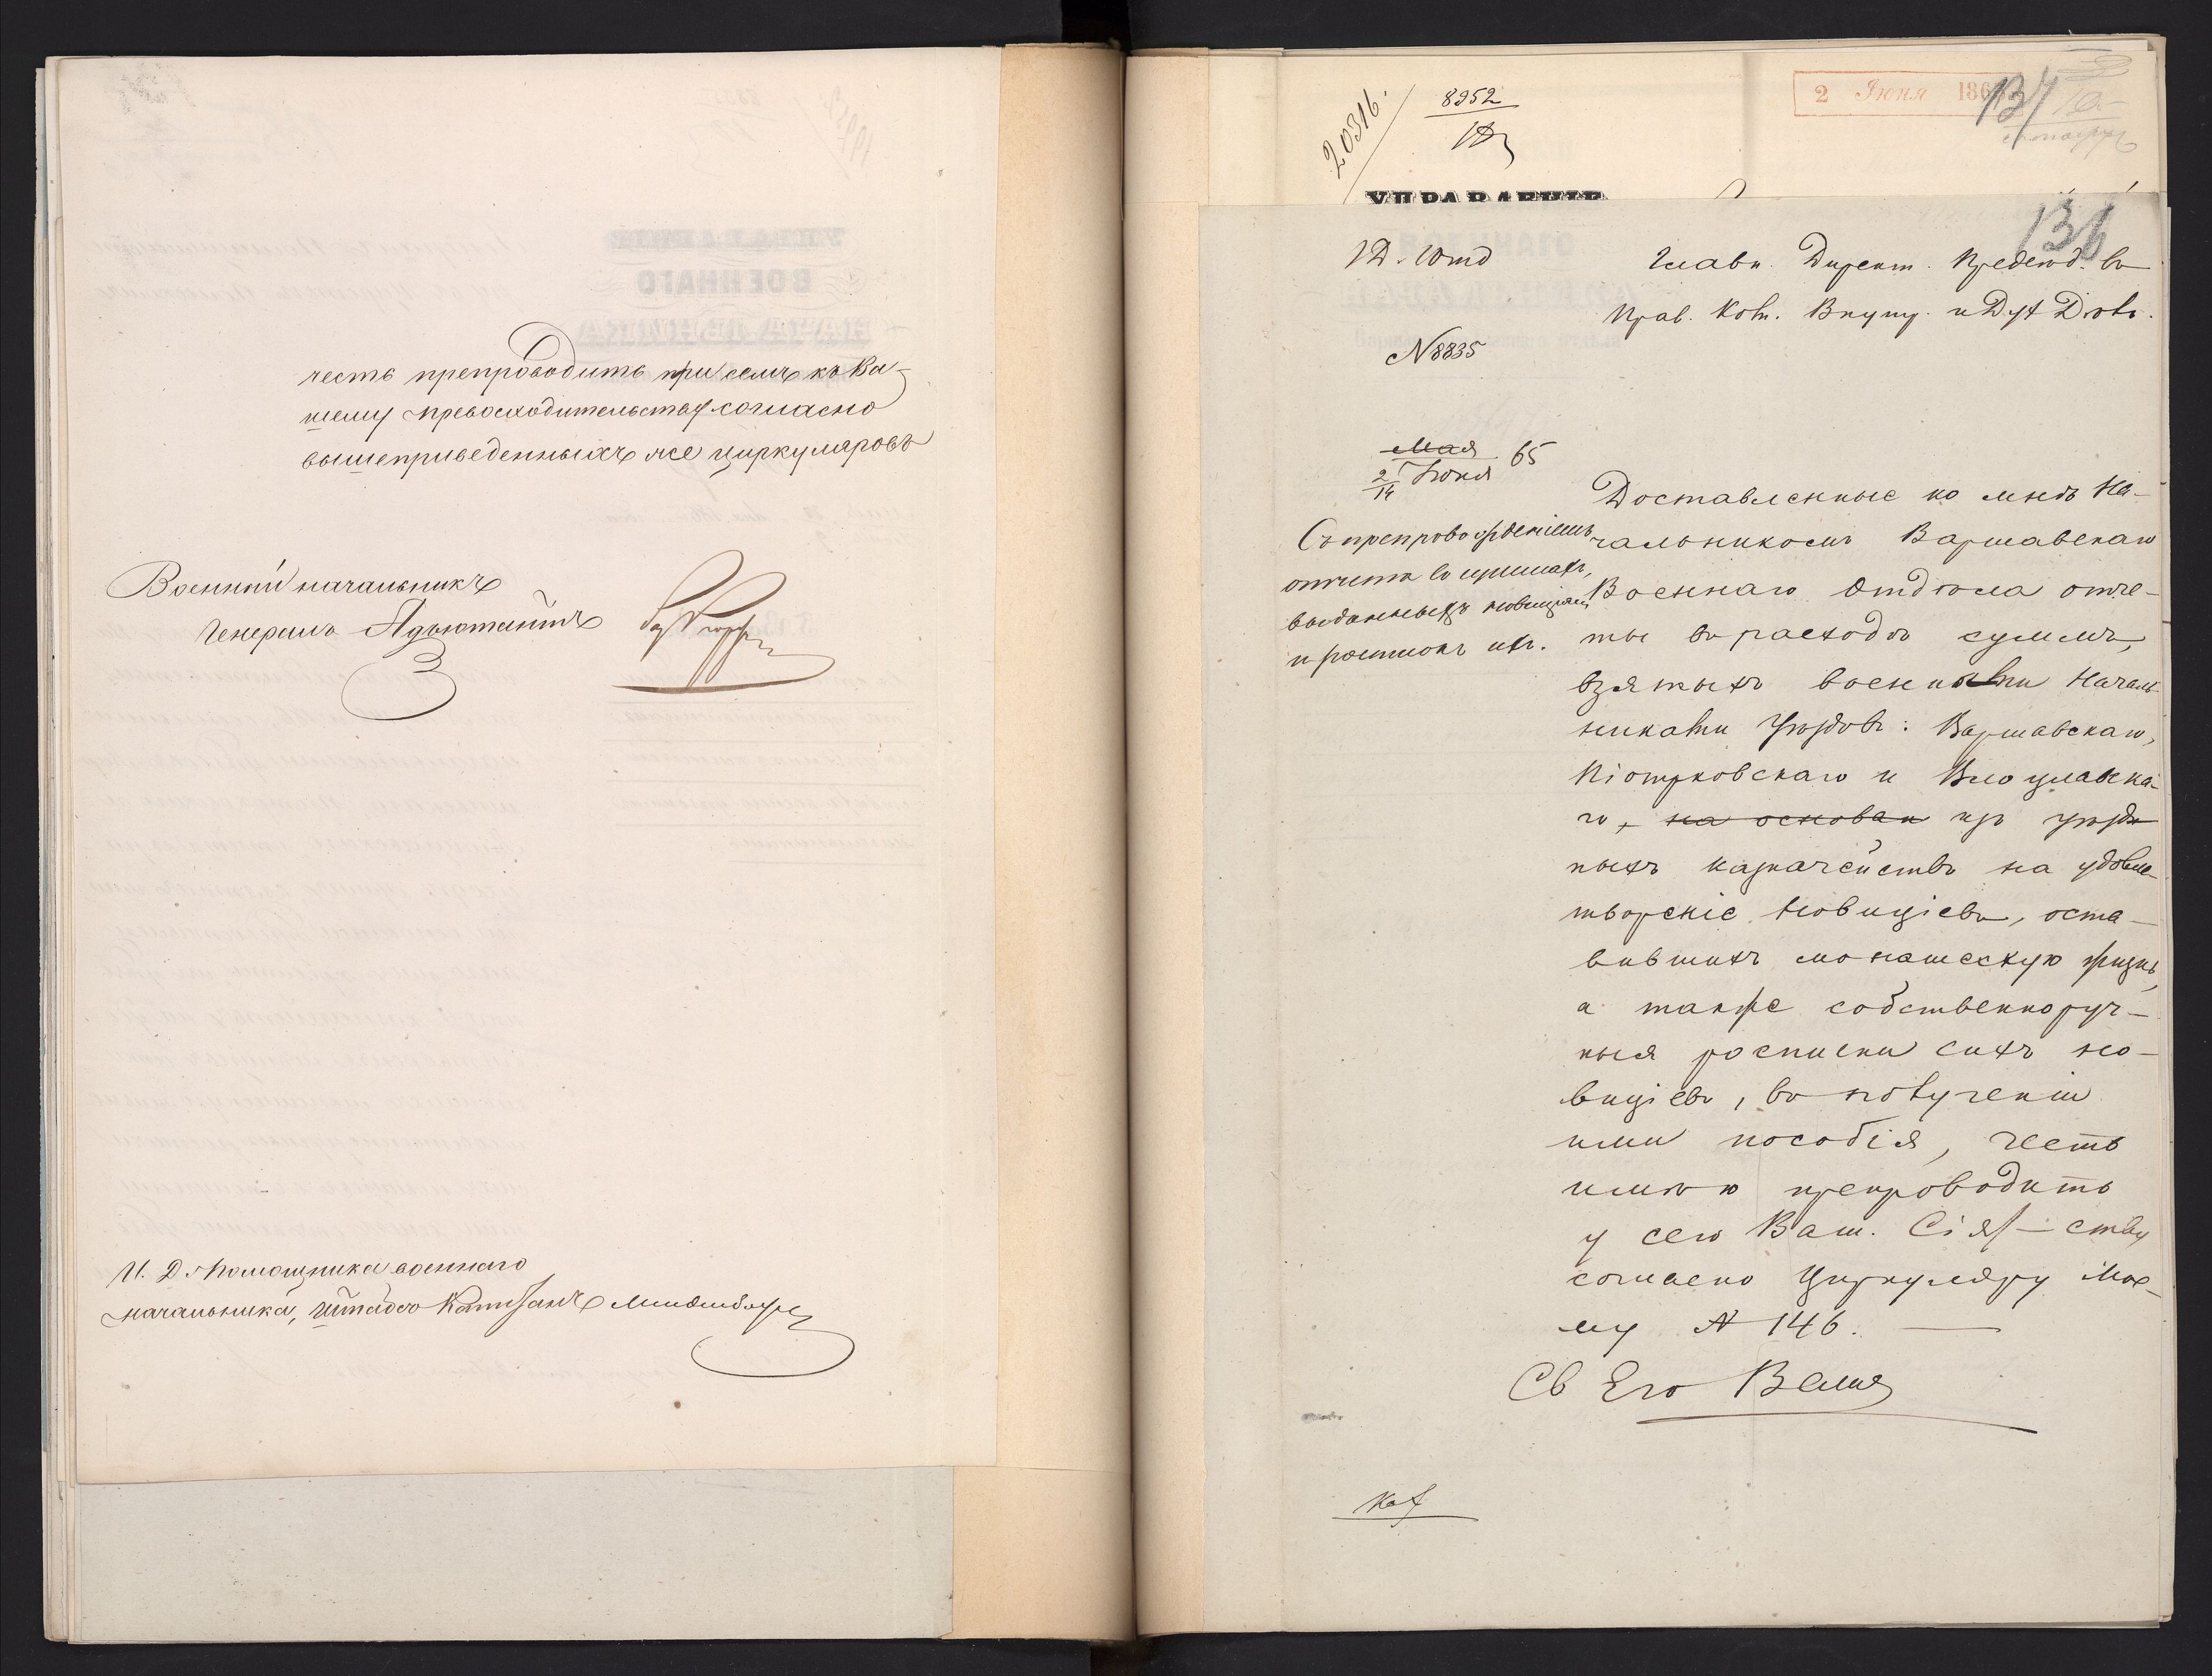 честь препроводить при семъ къ Ва-
шему превосходительству согласно
вышеприведенныхъ же циркуляровъ
Военный начальникъ
Генералъ Адъютантъ
И. Д. Помощника военного
начальника, Штабсъ Капитанъ
20316.
8952
2 Іюня 186
134
УПРАВЛЕНІЕ
136
1 Д. Отд
№ 8835
Мая
2/14 Іюня 65
Съ препровожденіемъ
отчета въ суммахъ,
выданныхъ новиціямъ
и росписокъ ихъ.
Главн. Директ. Предсѣд. въ
Прав. Ком. Внутр. и Дух Дѣлъ.
Доставленные ко мнѣ На-
чальникомъ Варшавскаго
Военнаго Отдѣла отче-
ты въ расходѣ суммъ,
взятыхъ военными Началь-
никами Уѣздовъ: Варшавскаго,
Піотрковскаго и Влоцлавска-
го, на основан изъ уѣзд
ныхъ казначействъ на удовле-
твореніе Новиціевъ, оста-
вившихъ монашескую жизнь,
а также собственноруч-
ныя росписки сихъ но-
виціевъ, въ полученіи
ими пособія, честь
имѣю препроводить
у сего Ваш. Сія-ству
согласно Циркуляру Мое-
му № 146.
Св Его